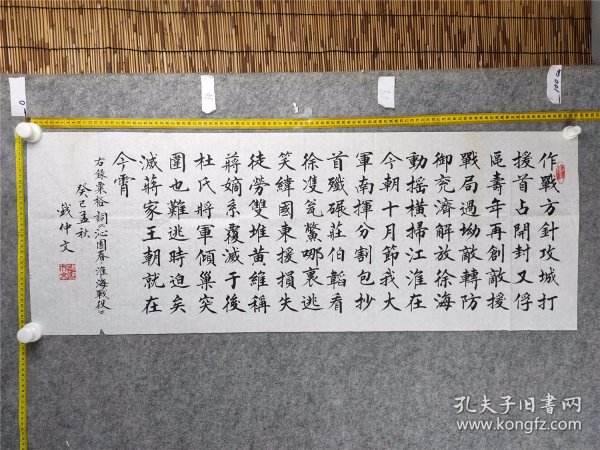 作戰方針攻城打
援首占開封又俘
區壽年再創敵援
戰局過坳敵轉防
御兖濟解放徐海
動搖橫掃江淮在
今朝十月節我大
軍南揮分割包抄
首殲碾莊伯韜看
徐瓮鱉哪裏逃
笑緯國東援損失
徒勞雙堆黄維稱
蔣嫡系覆滅于後
杜氏將軍傾巢突
圍也難逃時迫矣
滅蔣家王朝就在
今霄
右錄粟裕詞《沁園春淮海戰役》
癸巳孟秋
仲文
孔夫子旧書网
www.kongfz.com